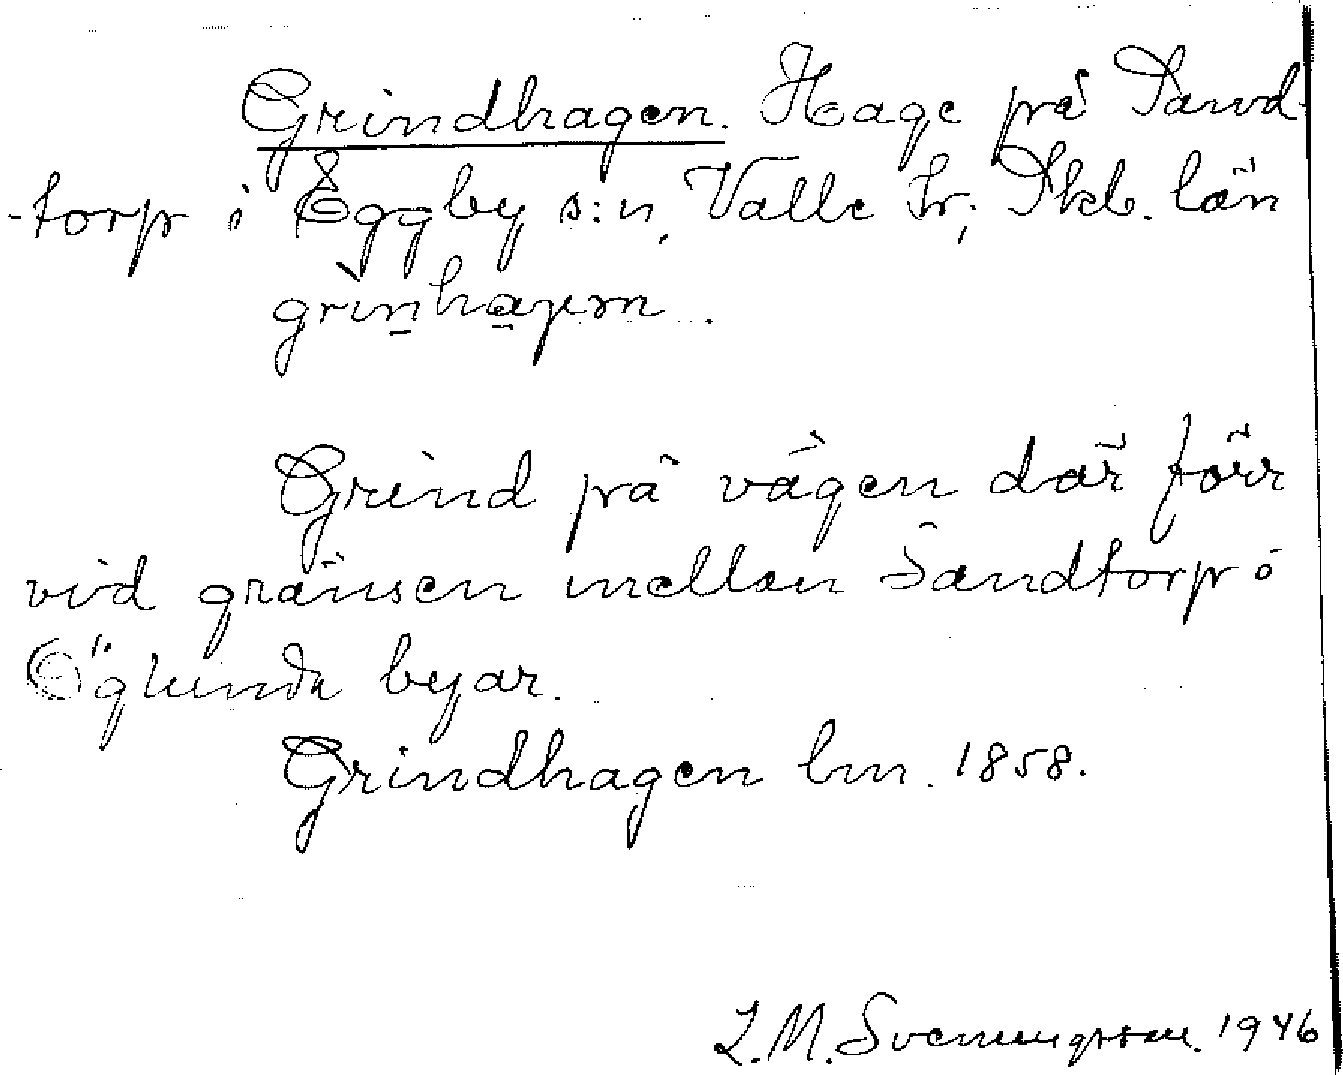 Grindhagen. Hage på Sand-
-torp i Eggby s:n, Valle hr; Skb. län
grìn̠ha̠γən.
Grind på vägen där förr
vid gränsen mellan Sandtorp o
Öglunda byar.
Grindhagen lm. 1858.
L.M. Svenungsson. 1946